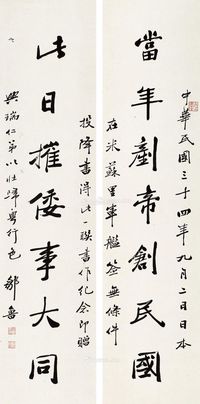 中華民國三十四年九月二日日本
當年剷帝創民國
在米蘇里軍艦簽無條件
投降書得此一聯書作紀念即贈
此日摧倭事大同
瑞仁弟以壯歸粵行色 鄒魯